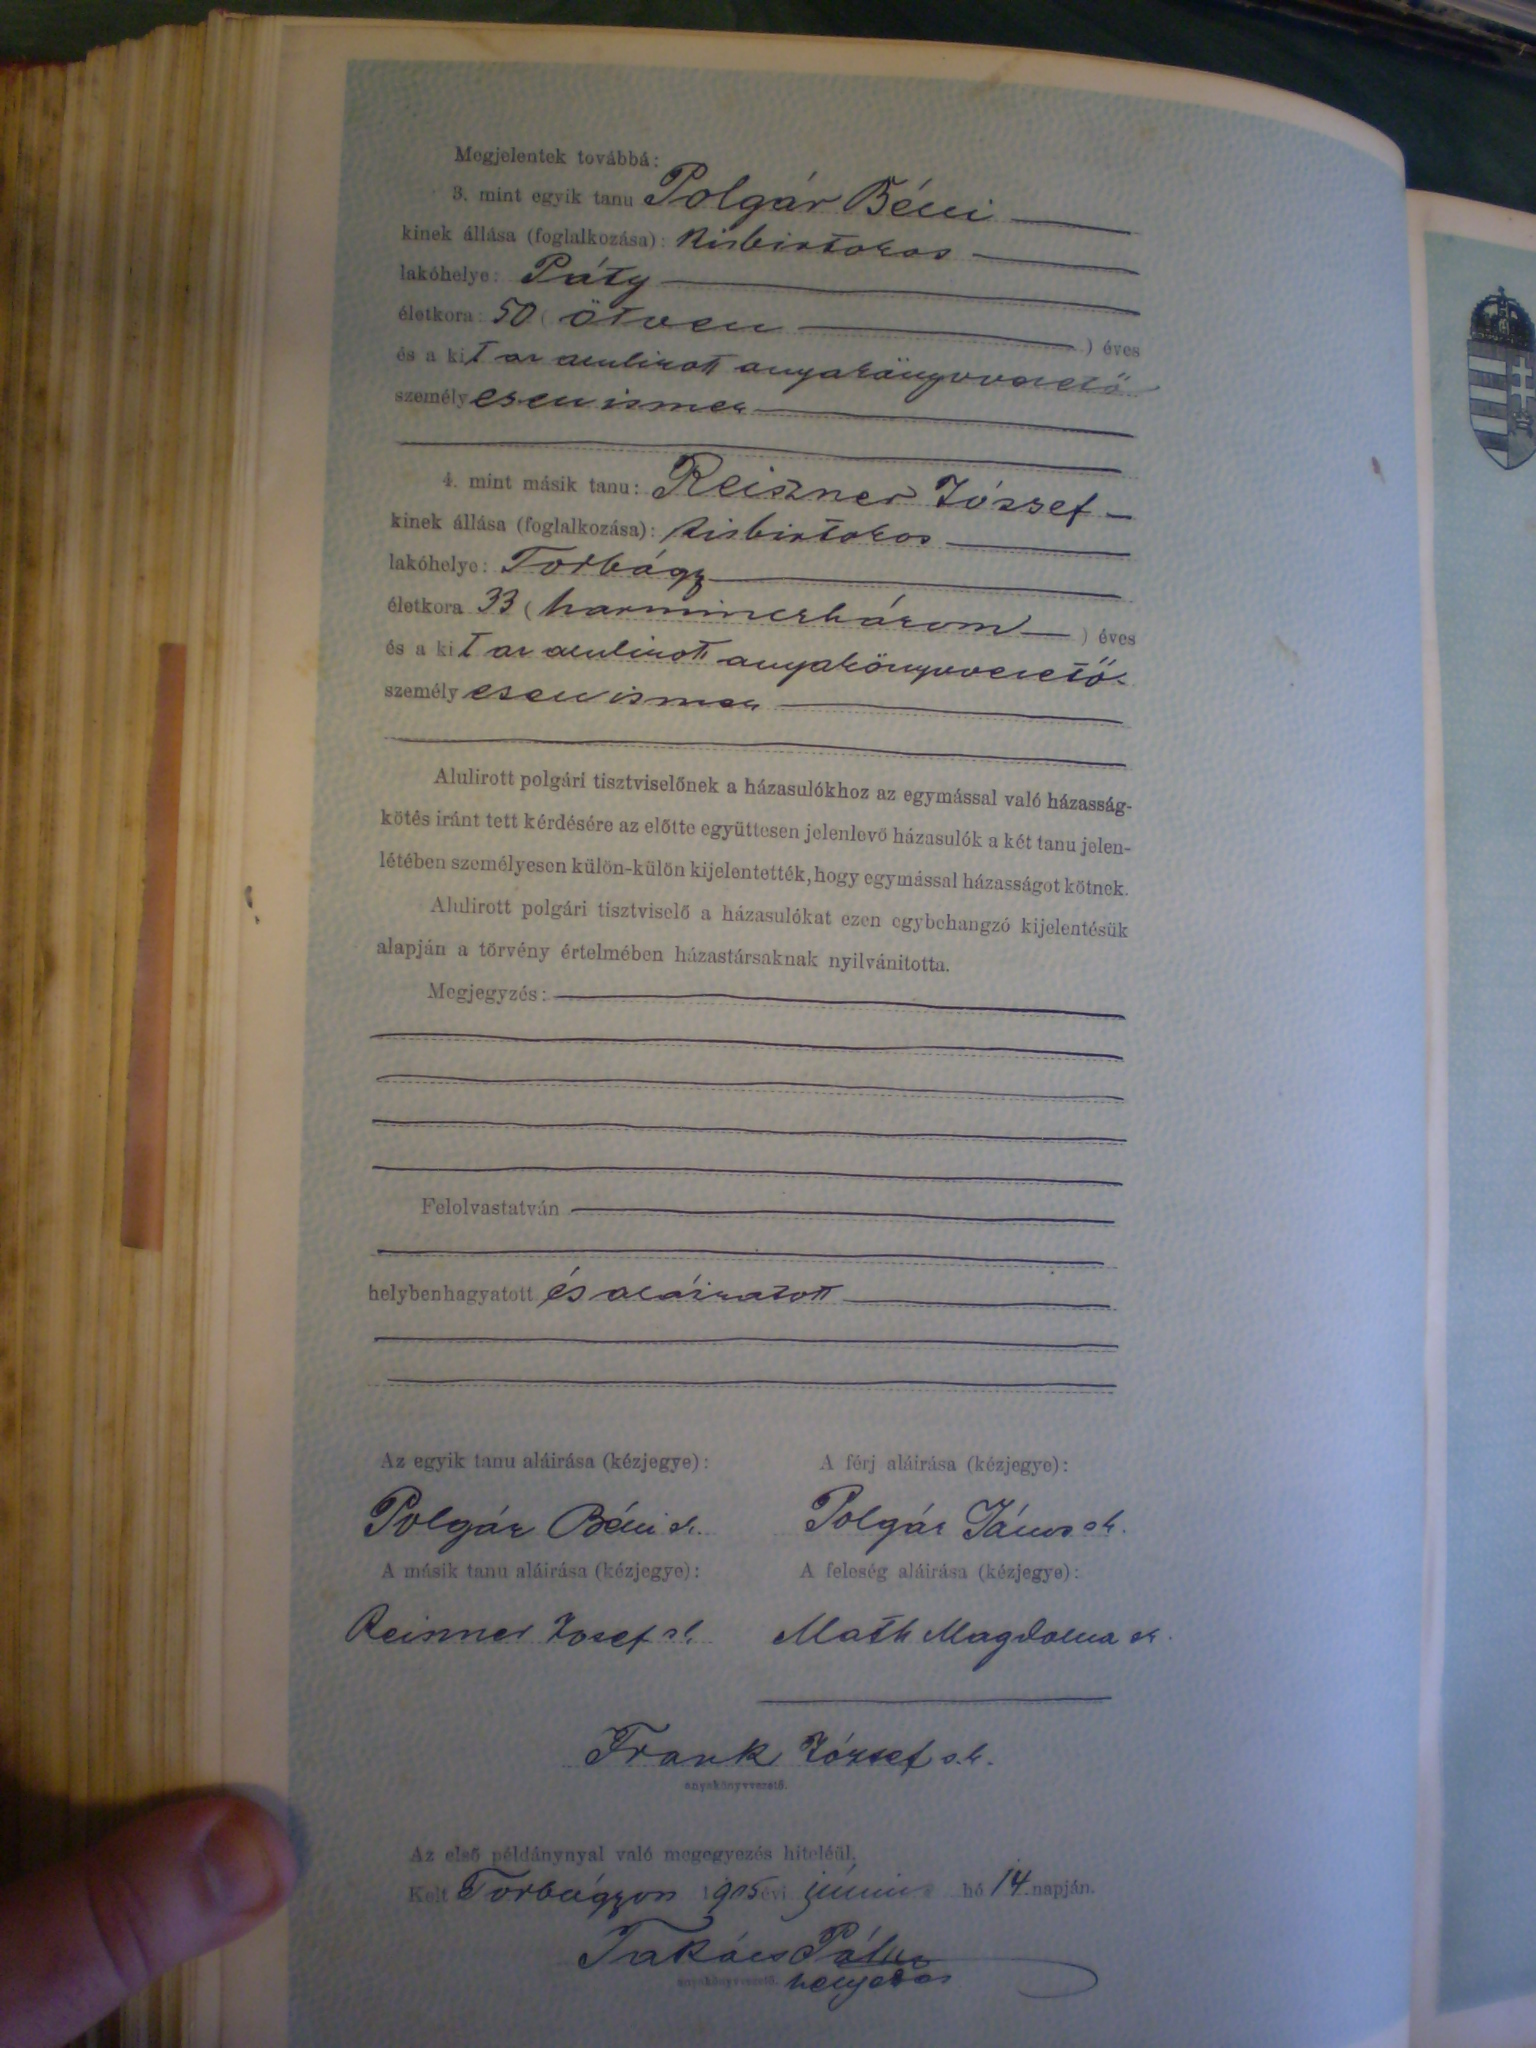 Megjelentek továbbá:
3. mint egyik tanu Polgár Béni
kinek állása (foglalkozása): kisbirtokos
lakóhelye: Páty
életkora: 50 (ötven) éves
és a kit az alulirott anyakönyvvezető
személyesen ismer
4. mint másik tanu: Reiszner József
kinek állása (foglalkozása): kisbirtokos
lakóhelye: Torbágy
életkora 33 (harminczhárom) éves
és a kit az alulirott anyakönyvvezető
személyesen ismer
Alulirott polgári tisztviselőnek a házasulókhoz az egymással való házasság-
kötés iránt tett kérdésére az előtte együttesen jelenlevő házasulók a két tanu jelen-
létében személyesen külön-külön kijelentették, hogy egymással házasságot kötnek.
Alulirott polgári tisztviselő a házasulókat ezen egybehangzó kijelentésük
alapján a törvény értelmében házastársaknak nyilvánitotta.
Megjegyzés:
Felolvastatván
helybenhagyatott és aláiratott
Az egyik tanu aláirása (kézjegye): A férj aláirása (kézjegye):
Polgár Béni sk. Polgár János sk.
A másik tanu aláirása (kézjegye): A feleség aláirása (kézjegye):
Josef sk. Math Magdolna sk.
Frank József s.k.
anyakönyvvezető.
Az első példánynyal való megegyezés hiteléül,
Kelt Torbágyon 1905 évi június hó 14 napján.
Takács
anyakönyvvezető. helyettes